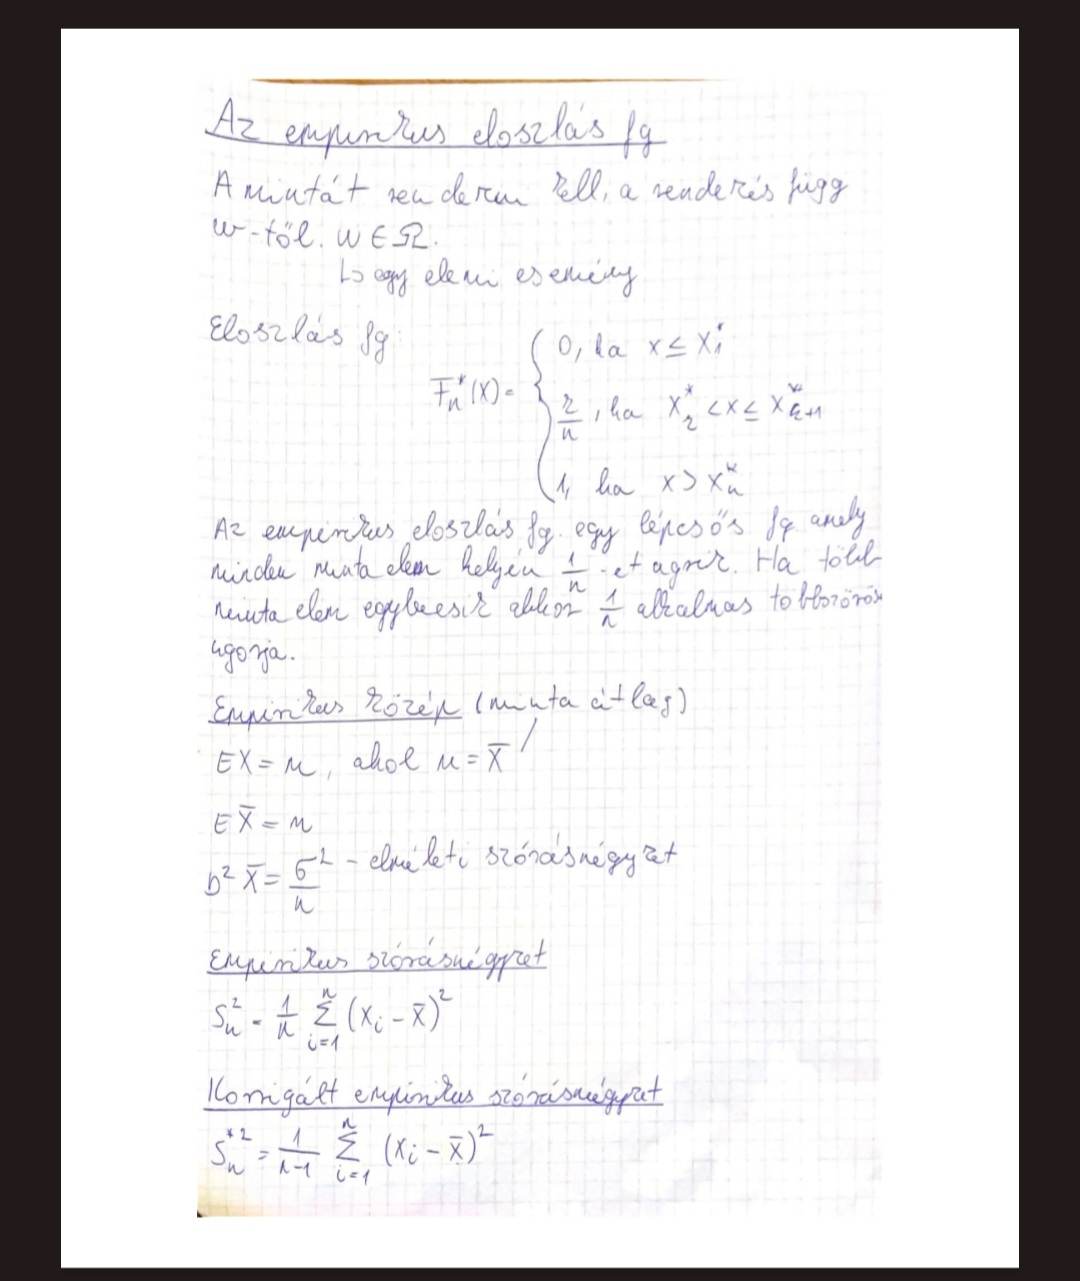 Az empirikus eloszlás fg
A mintát rendezni kell, a rendezés függ
ω-tól. ω ∈ Ω.
↳ egy elemi esemény
Eloszlás fg:
F̄ₙ*(x) = { 0, ha x ≤ x₁*
k/n, ha xₖ* < x ≤ xₖ₊₁*
1, ha x > xₙ*
Az empirikus eloszlás fg. egy lépcsős fg amely
minden minta elem helyén 1/n -et ugrik. Ha több
minta elem egybeesik akkor 1/n alkalmas többszörös
ugorja.
Empirikus közép (minta átlag)
EX = m, ahol m = X̄
EX̄ = m
D² X̄ = σ²/n - elméleti szórásnégyzet
Empirikus szórásnégyzet
Sₙ² = 1/n Σᵢ₌₁ⁿ (xᵢ - x̄)²
Korrigált empirikus szórásnégyzet
Sₙ*² = 1/(n-1) Σᵢ₌₁ⁿ (xᵢ - x̄)²